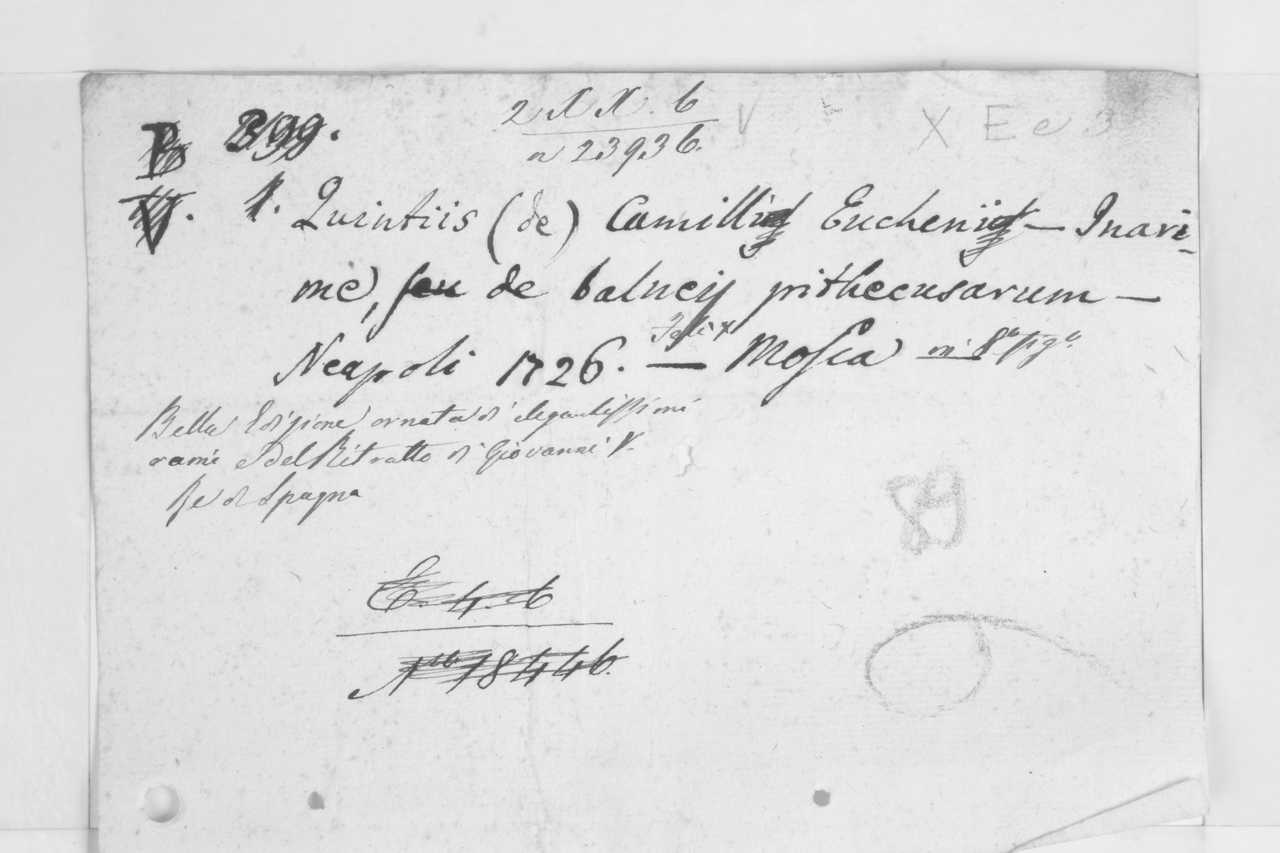 2 X X. 6
n 23936.
X E e 3
B 399.
V. 1. Quintiis (de) Camilli Eucheni — Inari-
me, seu de balneij pithecusarum —
Neapoli 1726. — Felix Mosca in 8º fig.
Bella Edizione ornata di elegantissimi
rami e del Ritratto di Giovanni V.
Re di Spagna
89
E. 4. 6
Nº 18446.